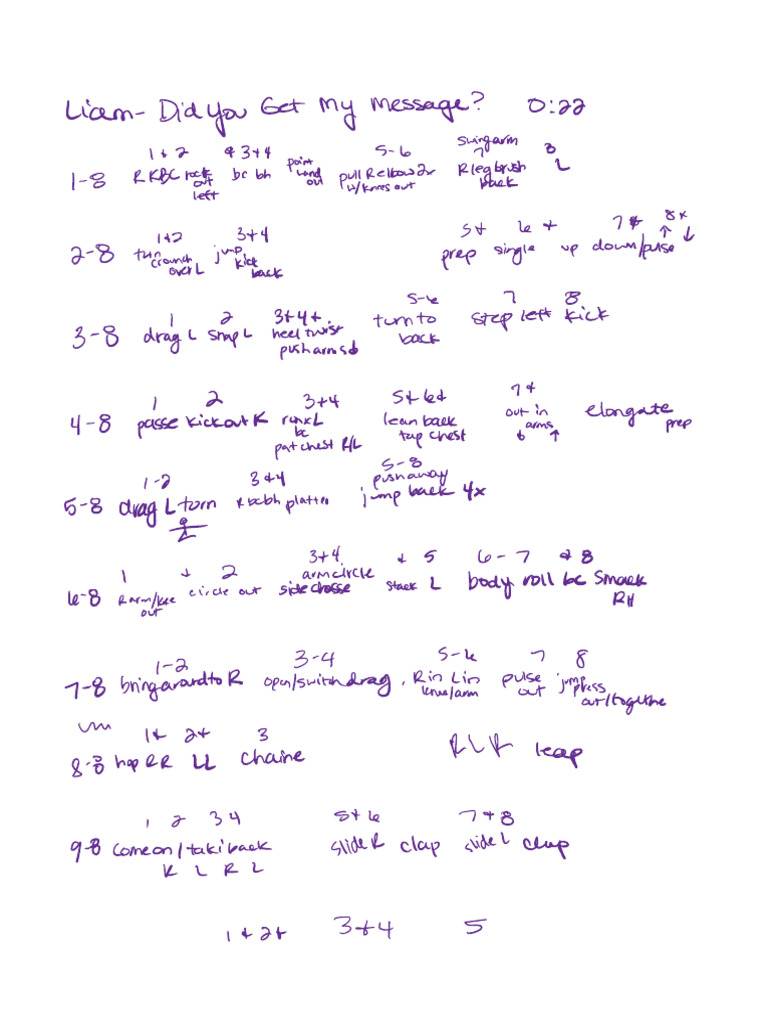 Liam - Did You Get My Message? 0:22
swing arm
1+2 & 3+4 5-6 7 8
1-8 R KBC rock out left bc bh point hand out pull R elbow 2x w/ knees out R leg brush back L
1+2 3+4 5+ 6 + 7 + 8x
2-8 turn crunch over L jump kick back prep single up down/pulse ↑ ↓
1 2 3+4+ 5-6 7 8
3-8 drag L snap L heel twist push arms d turn to back step left kick
1 2 3+4 5+ 6+ 7+
4-8 passe kick out R L bc pat chest R/L lean back tap chest out in arms ↓ ↑ elongate prep
1-2 3+4 5-8
push away
5-8 drag L turn R bc bh jump back 4x
1 + 2 3+4 + 5 6-7 + 8
arm circle
6-8 R arm/knee out circle out side chasse L body roll bc smack RH
1-2 3-4 5-6 7 8
7-8 bring around to R open/switch drag, R in L in knee/arm pulse out jump press out/together
1+ 2+ 3
8-8 hop RR LL chaine R L R leap
1 2 3 4 5+6 7+8
9-8 come on/take back slide R clap slide L clap
R L R L
1 + 2+ 3+4 5